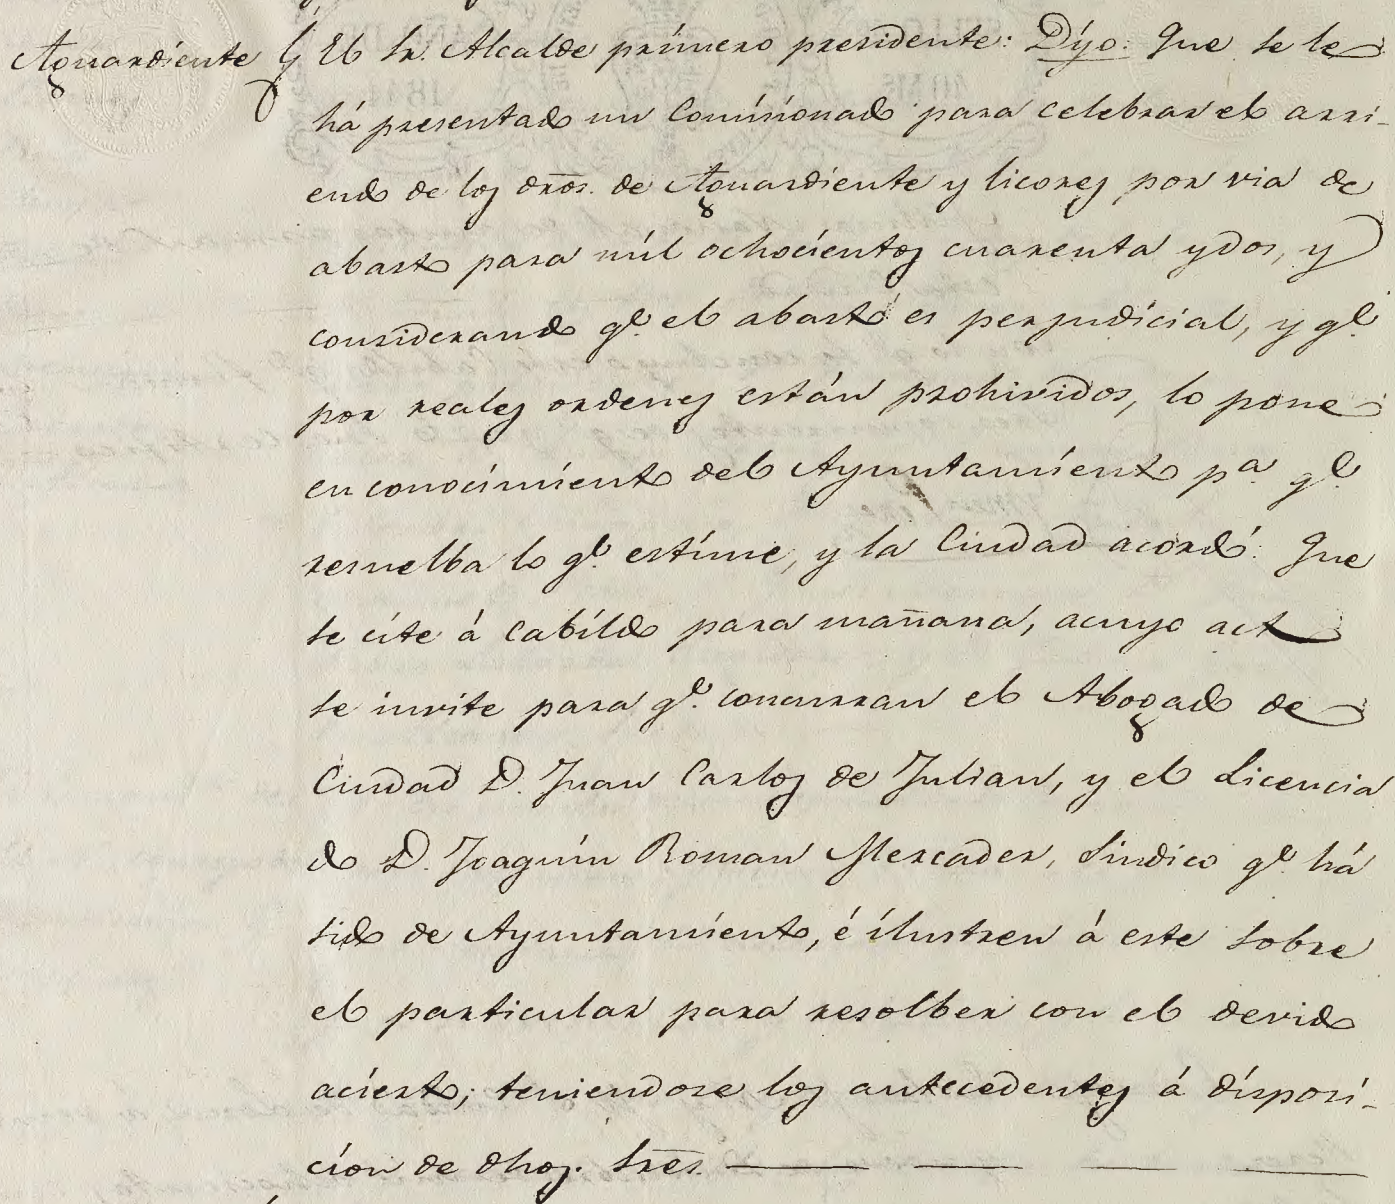 Aguardiente El Sr. Alcalde primero presidente: Dijo: Que se le
há presentado un Comisionado para celebrar el arri-
endo de los dr̄os. de Aguardiente y licores por via de
abasto para mil ochocientos cuarenta y dos, y
considerando qe. el abasto es perjudicial, y qe.
por reales ordenes están prohividos, lo pone
en conocimiento del Ayuntamiento pa. qe.
resuelba lo qe. estime, y la Ciudad acordó: Que
se cite á Cabildo para mañana, acuyo acto
se invite para qe. concurran el Abogado de
Ciudad D. Juan Carlos de Julian, y el Licencia
do D. Joaquín Roman Mercader, Sindico qe. há
sido de Ayuntamiento, é ilustren á este sobre
el particular para resolber con el devido
acierto; teniendose los antecedentes á disposi-
cion de dhos. Sres.